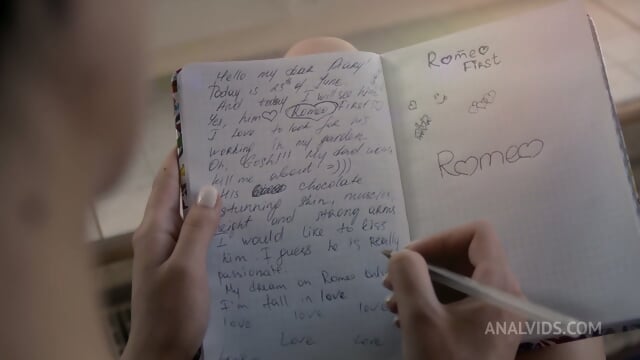 Hello my dear Diary!
Today is 25th of June
And today I will see him
Yes, him Romeo First
I love to look for his
working in my garden
Oh, Gosh!!! My dad would
kill me about =)))
His chocolate
stunning skin, muscles,
and strong arms
I would like to kiss
him. I guess he is really
passionate.
My dream on Romeo
I'm fall in love
love love love
Love Love
Romeo
First
Romeo
ANALVIDS.COM